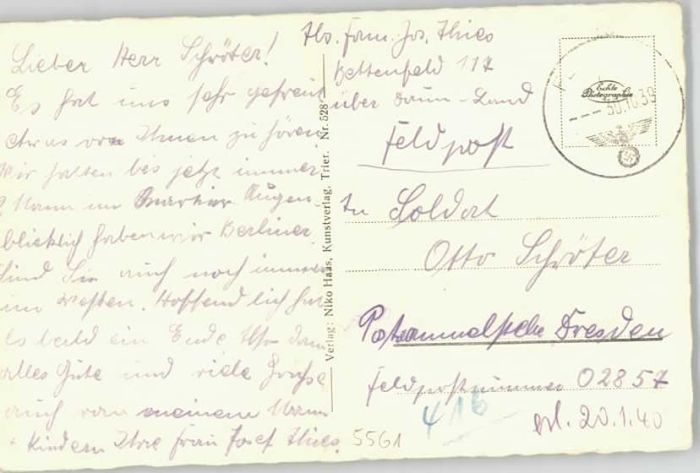 Lieber Herr Schröter!
Es hat uns sehr gefreut
etwas von Ihnen zu hören
Wir hatten bis jetzt immer
Mann im Quartier Augen-
blicklich haben wir Berliner.
Sind Sie auch noch immer
im Westen. Hoffendlich hat
es bald ein Ende
alles Gute und viele Grüße
auch von meinem Mann
+ Kindern Ihre Frau Josef Thies.
Verlag: Niko Haas, Kunstverlag. Trier. Nr. 528
Abs. Fam. Jos. Thies
Bettenfeld 117
über Daun-Land
Feldpost
Echte
Photographie
30.10.39
An Soldat
Otto Schröter
Dresden
Feldpostnummer 02857
416
erl. 20.1.40
5561